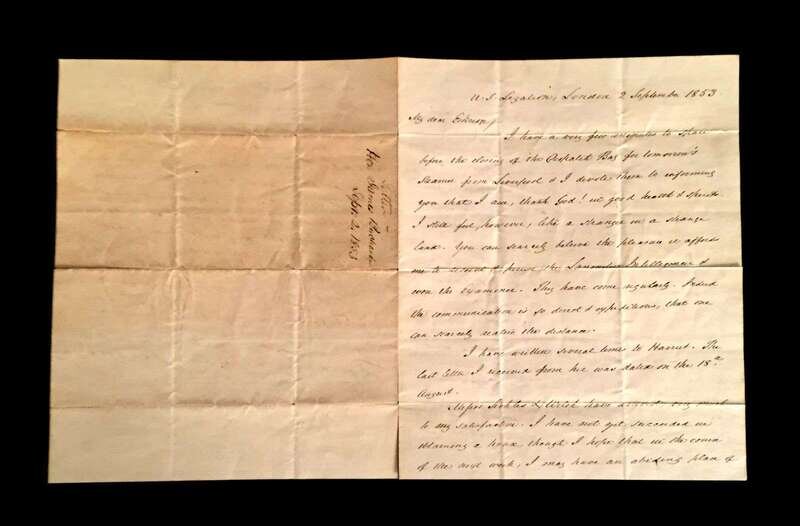 Letter
Hon James Buchanan
Sept. 2. 1853
U.S. Legation, London 2 September 1853
My dear
I have a very few minutes to spare
before the closing of the Despatch Bag for tomorrow's
Steamer from Liverpool & I devote them to informing
you that I am, thank God! in good health & spirits.
I still feel, however, like a stranger in a strange
land. You can scarcely believe the pleasure it affords
me to receive & peruse the Lancaster Intelligencer &
even the Examiner. They have come regularly. Indeed
the communication is so direct & expeditious, that one
can scarcely realize the distance.
I have written several times to Harriet. The
last letter I received from her was dated on the 18th
August.
Messrs Sickles & Welsh have arrived very much
to my satisfaction. I have not yet succeeded in
obtaining a house though I hope that in the course
of the next week, I may have an abiding place of